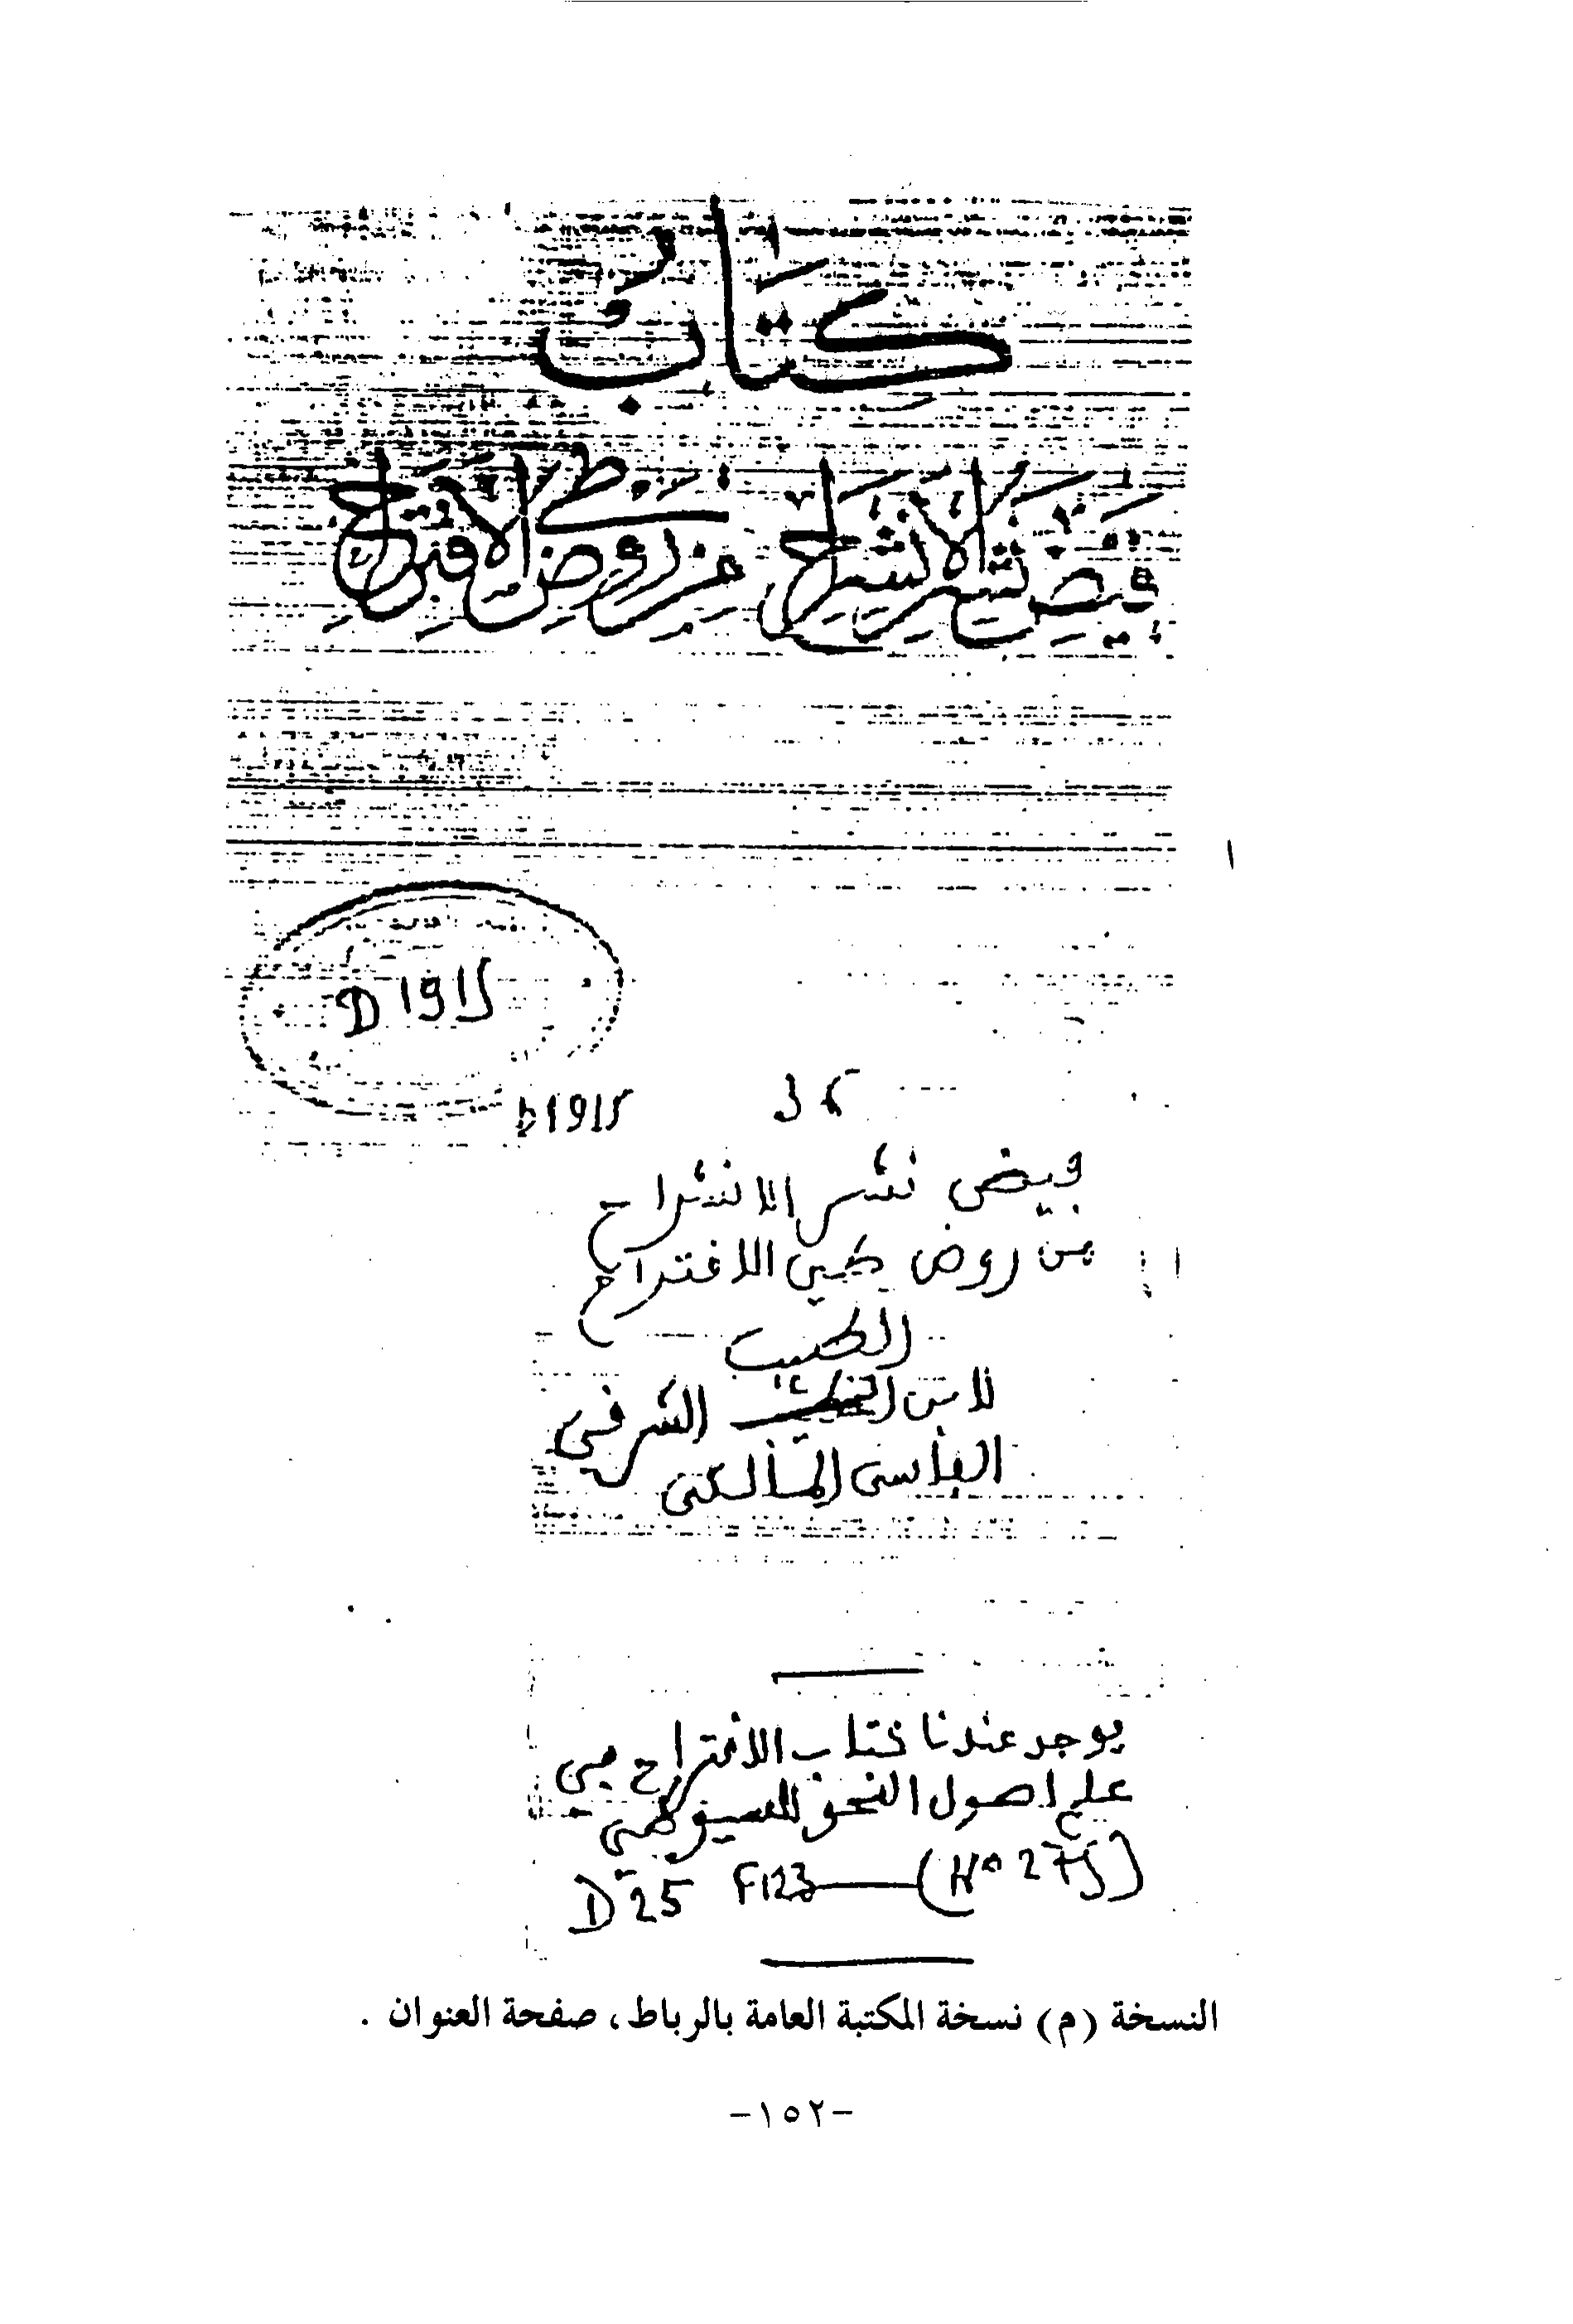 كتاب
فيض نشر الانشراح من روض طي الاقتراح
D 1915
D 1915
36
فيض نشر الانشراح
من روض طي الاقتراح
الطيب
لابن الشرفي
الفاسي المالكي
يوجد عندنا كتاب الاقتراح في
علم اصول النحو للسيوطي
D 25 F123—(N° 275)
النسخة (م) نسخة المكتبة العامة بالرباط، صفحة العنوان .
-١٥٢-